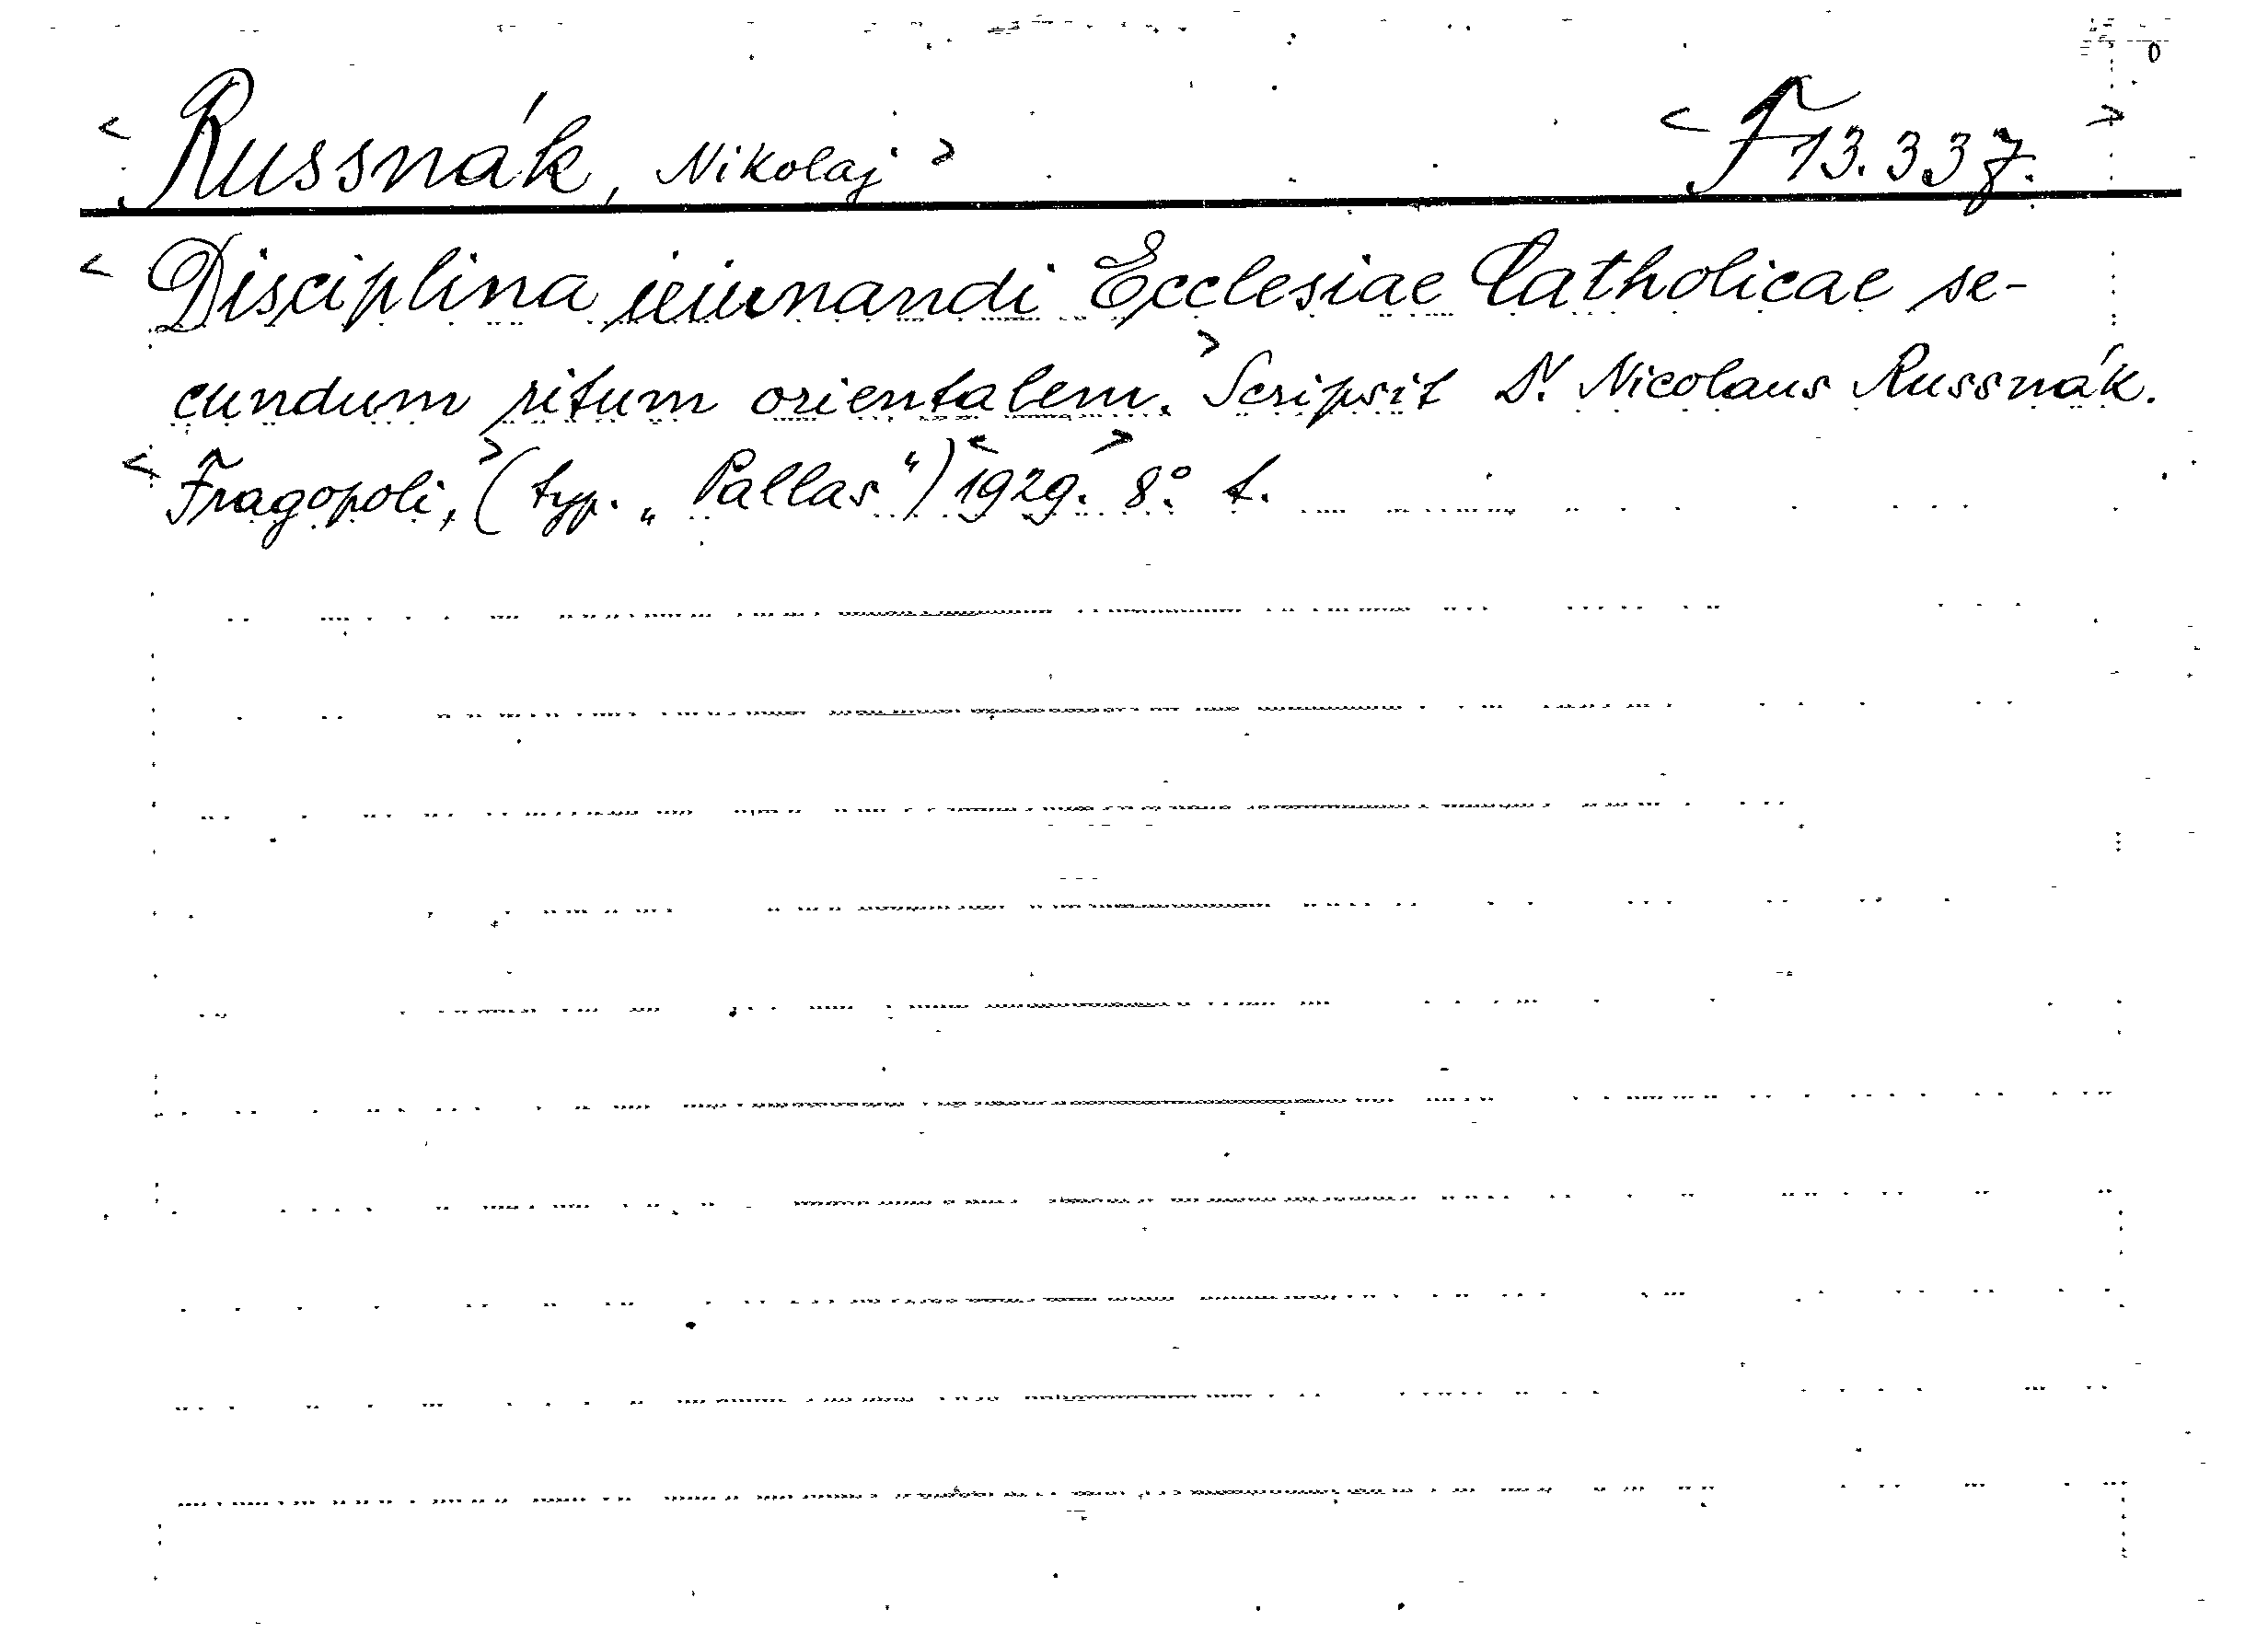 < Russnák, Nikolaj > < F 13.337. >
< Disciplina ieiunandi Ecclesiae Catholicae se-
cundum ritum orientalem. > Scripsit Dr. Nicolaus Russnák.
< Fragopoli, > (typ. „Pallas“) < 1929. > 8° t.